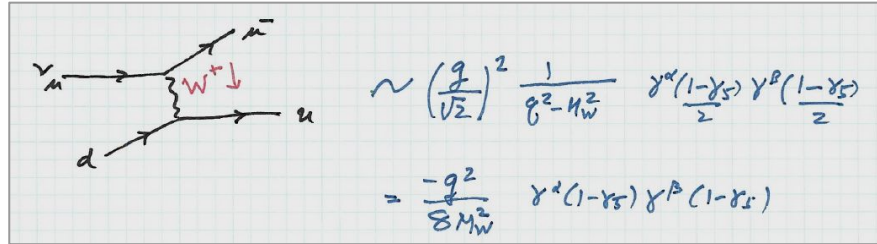 μ⁻
ν_μ
W⁺ ↓
u
d
~ (g/√2)² 1/(q²-M_W²) γ^α(1-γ₅)/2 γ^β(1-γ₅)/2
= -g²/8M_W² γ^α(1-γ₅)γ^β(1-γ₅)